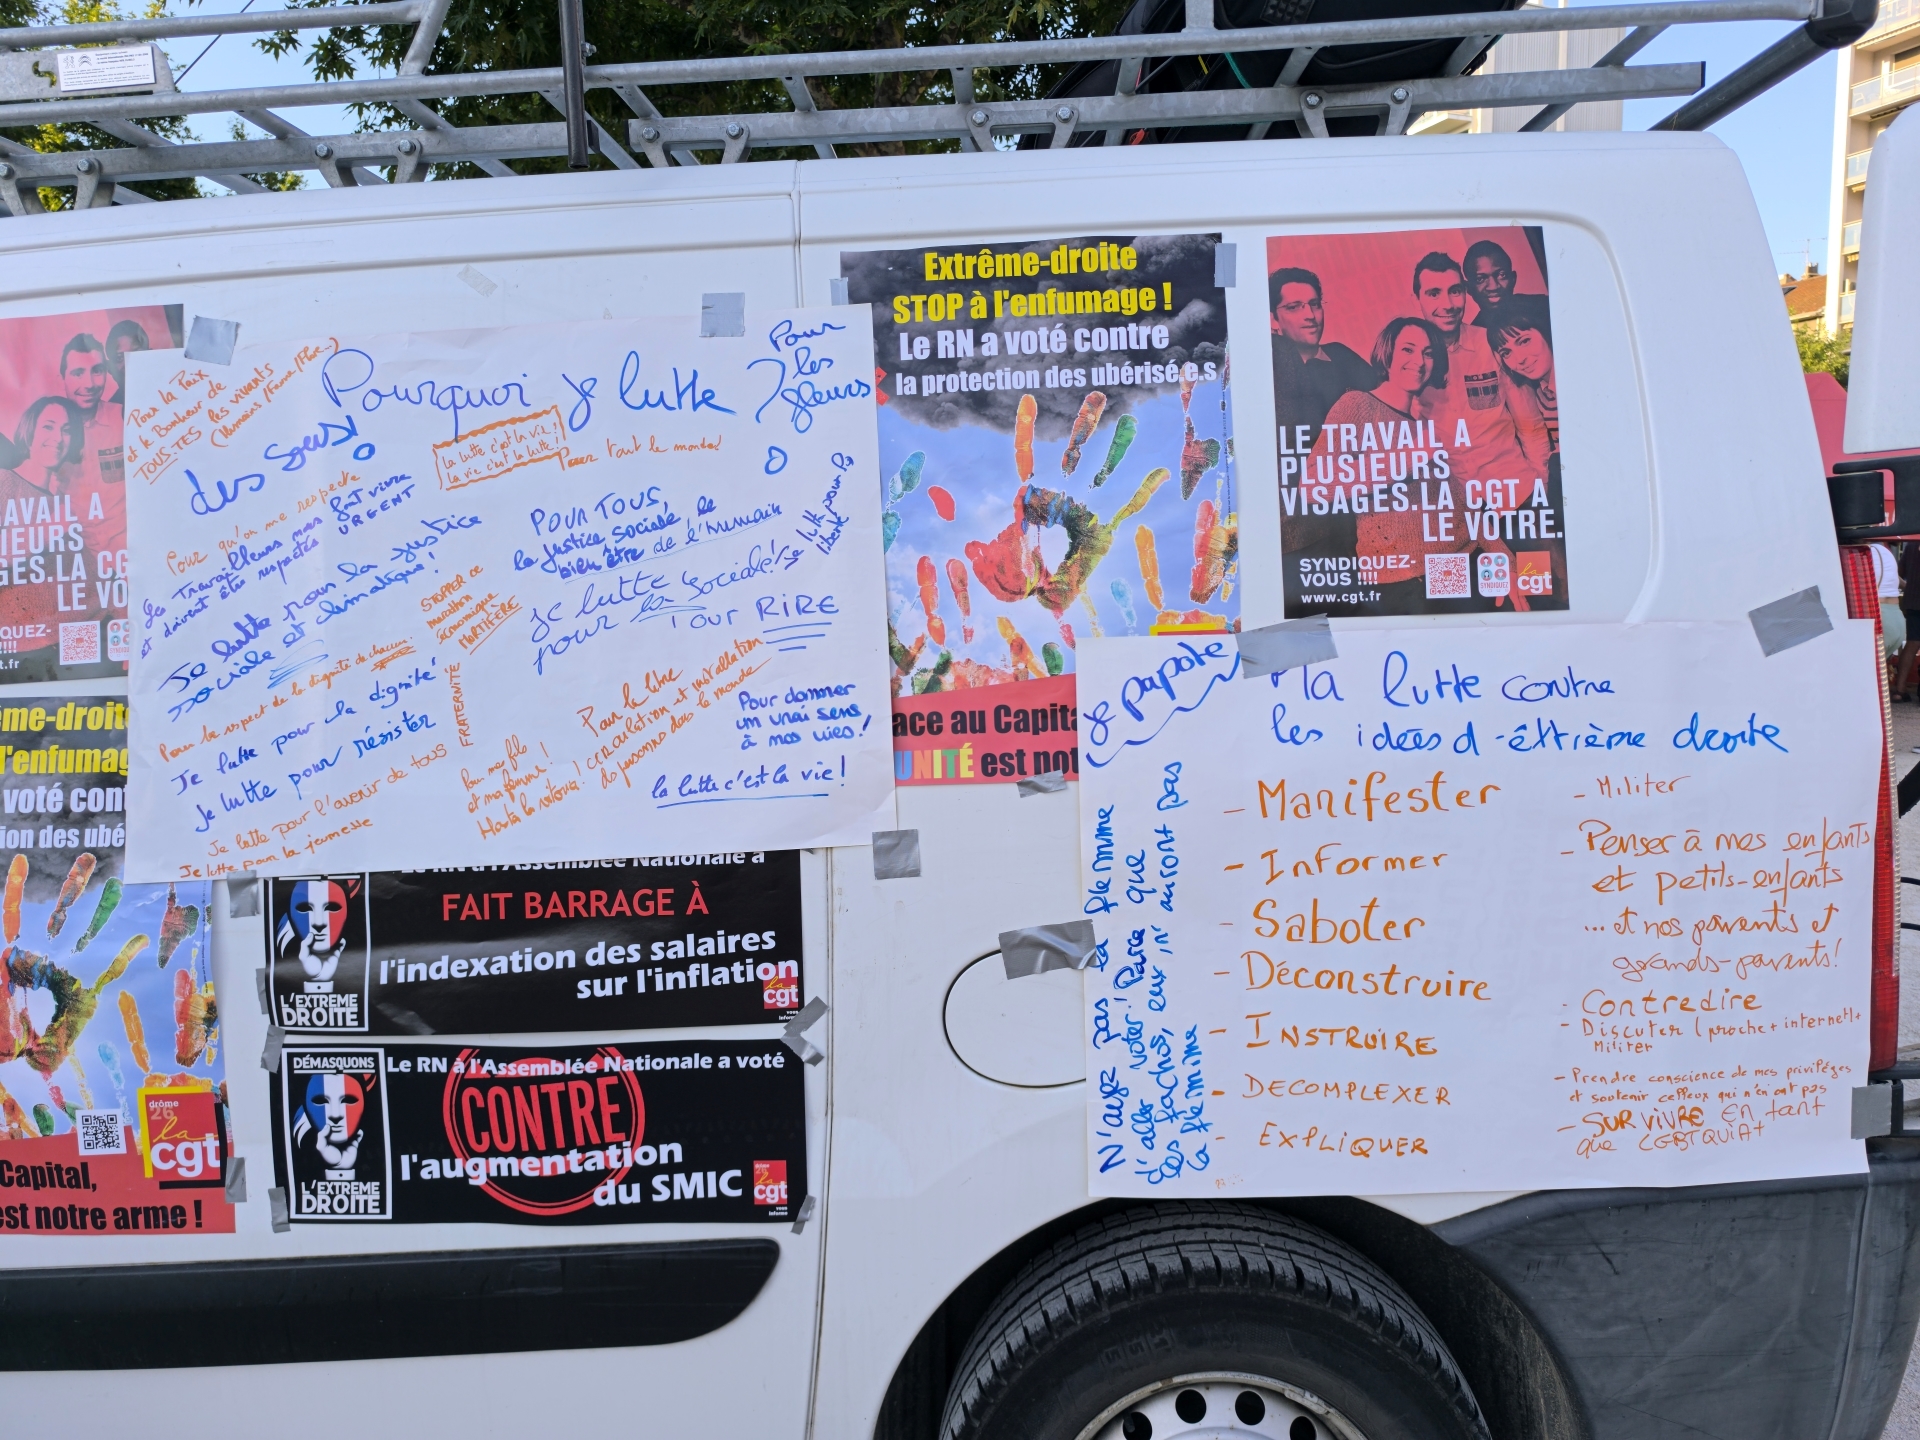 AVAIL A
IEURS
GES.LA CG
LE VÔ
QUEZ-
!!!!
.fr
ême-droite
l'enfumag
voté cont
ion des ubé
Capital,
est notre arme !
drôme
26
la
cgt
Pour la Paix
et le Bonheur de
TOUS.TES les vivants
(Humains/Faune/Flore...)
Pourquoi je lutte ?
Pour
les
fleurs
des sous!
la lutte c'est la vie!
la vie c'est la lutte!
Pour tout le monde!
Pour qu'on me respecte
Les Travailleurs nous font vivre
et doivent être respectés URGENT
Je lutte pour la justice
sociale et climatique!
POUR TOUS,
la justice sociale, le
bien être de l'humain
je lutte
pour la sociale!
Je lutte pour la
liberté
STOPPER ce
économique
MORTIFÈRE
Pour RIRE
Pour le respect de la dignité de chacun.
Je lutte pour la dignité
Je lutte pour résister
FRATERNITÉ
Je lutte pour l'avenir de tous
Je lutte pour la jeunesse
Pour mes fils
et ma femme!
Hasta la victoria!
Pour la libre
circulation et installation
des personnes dans le monde
Pour donner
un vrai sens
à nos vies!
la lutte c'est la vie!
Extrême-droite
STOP à l'enfumage !
Le RN a voté contre
la protection des ubérisé.e.s
ace au Capita
UNITÉ est not
LE TRAVAIL A
PLUSIEURS
VISAGES.LA CGT A
LE VÔTRE.
SYNDIQUEZ-
VOUS !!!!
www.cgt.fr
la
cgt
Le RN à l'Assemblée Nationale a
FAIT BARRAGE À
l'indexation des salaires
sur l'inflation
L'EXTREME
DROITE
la
cgt
DÉMASQUONS
L'EXTREME
DROITE
Le RN à l'Assemblée Nationale a voté
CONTRE
l'augmentation
du SMIC
cgt
je papote
Ma lutte contre
les idées d'extrême droite
- Manifester
- Informer
- Saboter
- Déconstruire
- INSTRUIRE
- DECOMPLEXER
- EXPLIQUER
- Militer
- Penser à mes enfants
et petits-enfants
... et nos parents et
grands-parents!
- Contredire
- Discuter (proche + internet) +
Militer
- Prendre conscience de mes privilèges
et soutenir celleux qui n'en ont pas
- SURVIVRE en tant
que LGBTQUIA+
N'ayez pas la flemme
d'aller voter! Parce que
les fachos, eux, n'auront pas
la flemme